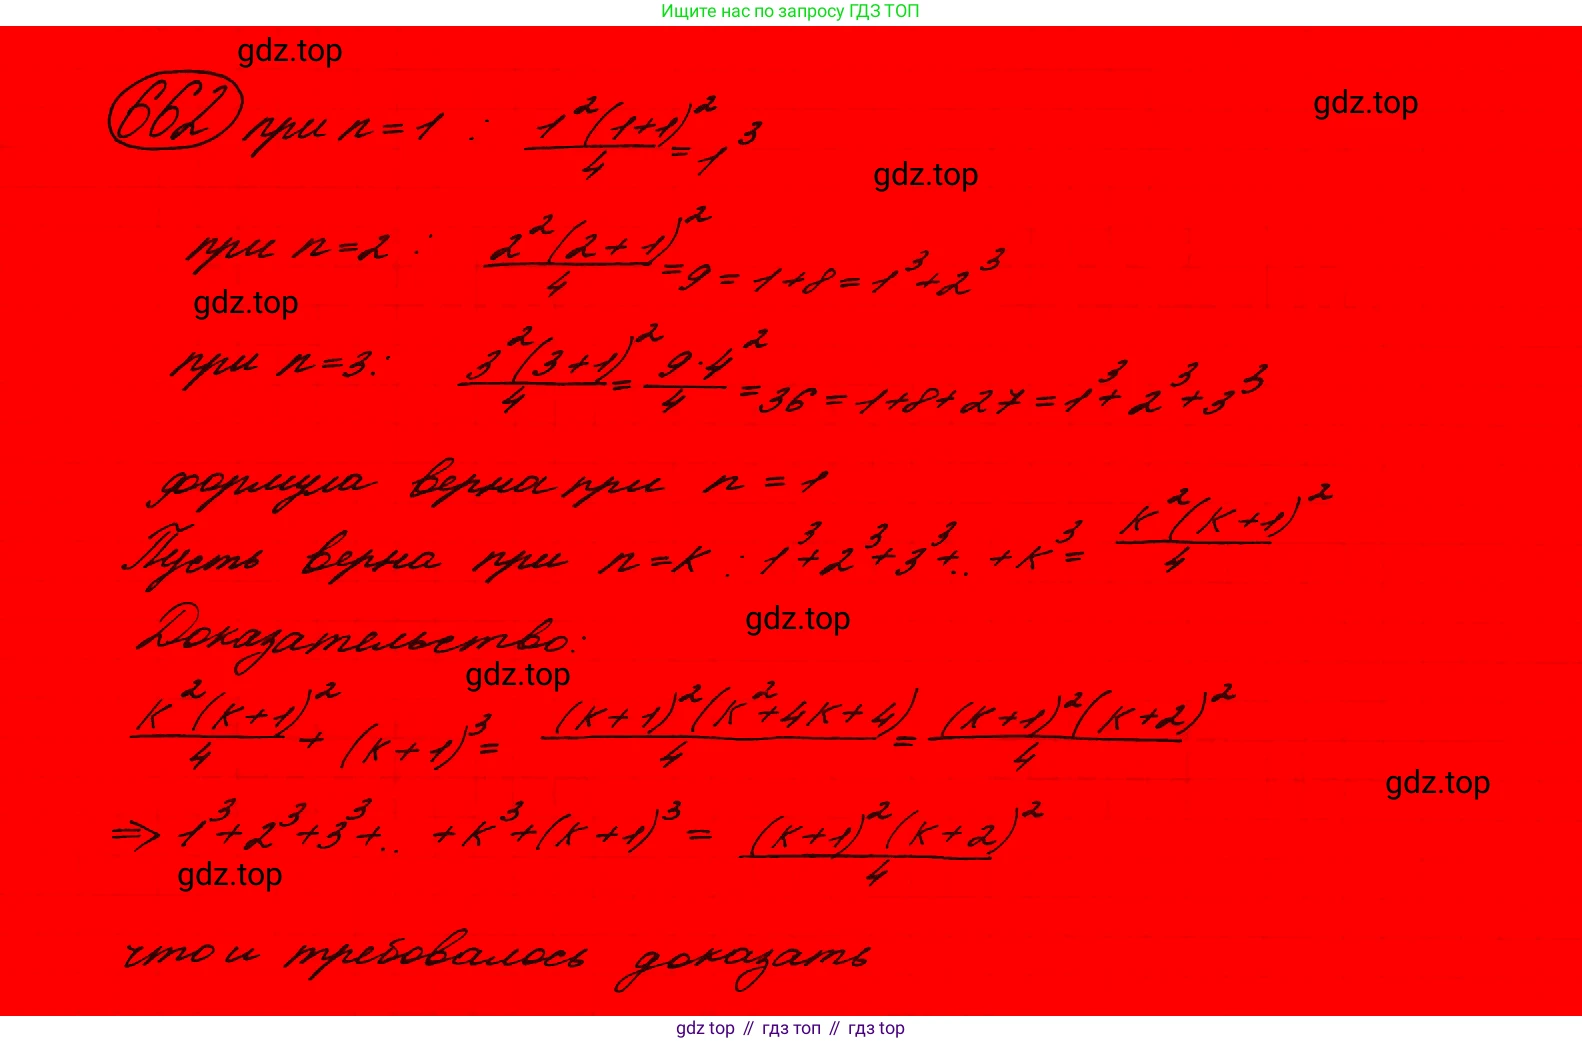 Ищите нас по запросу ГДЗ ТОП
gdz.top
gdz.top
662 при n = 1 : 1²(1+1)²/4 = 1³
gdz.top
при n = 2 : 2²(2+1)²/4 = 9 = 1+8 = 1³+2³
gdz.top
при n = 3: 3²(3+1)²/4 = 9·4²/4 = 36 = 1+8+27 = 1³+2³+3³
формула верна при n = 1
Пусть верна при n = k : 1³+2³+3³+.. +k³ = k²(k+1)²/4
gdz.top
Доказательство:
gdz.top
k²(k+1)²/4 + (k+1)³ = (k+1)²(k²+4k+4)/4 = (k+1)²(k+2)²/4
gdz.top
⇒ 1³+2³+3³+.. +k³+(k+1)³ = (k+1)²(k+2)²/4
gdz.top
что и требовалось доказать
gdz top // гдз топ // гдз top